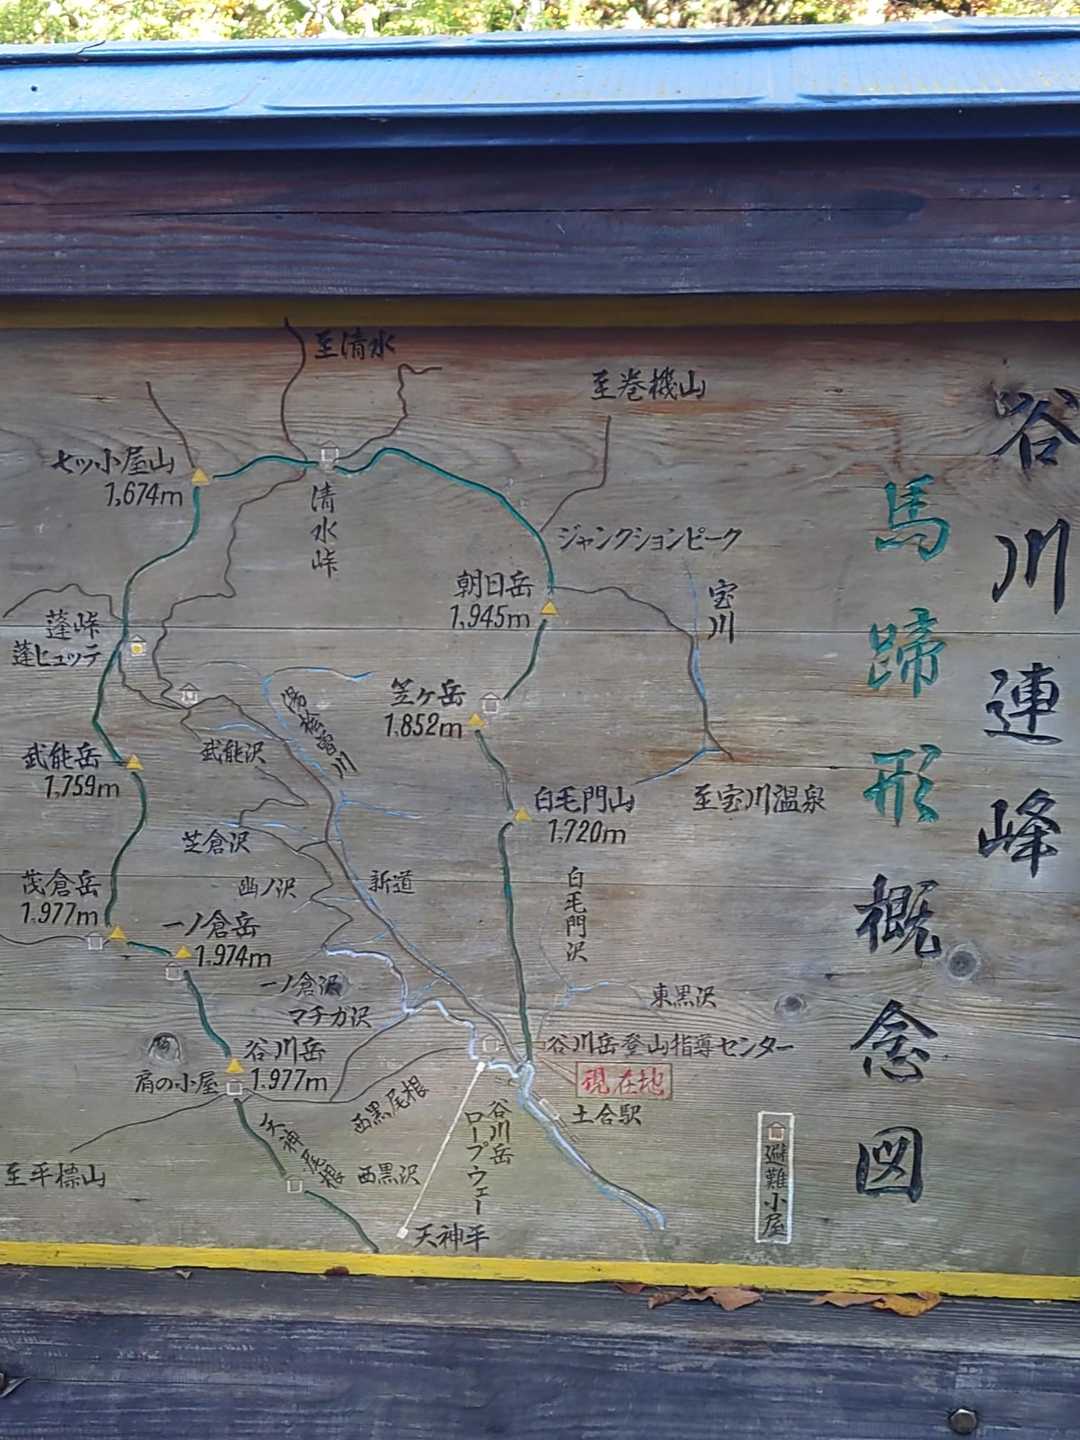 谷川連峰
馬蹄形概念図
至清水
至巻機山
七ッ小屋山
1,674m
清水峠
ジャンクションピーク
朝日岳
1,945m
宝川
蓬峠
蓬ヒュッテ
笠ヶ岳
1,852m
湯桧曽川
武能沢
武能岳
1,759m
白毛門山
1,720m
至宝川温泉
芝倉沢
幽ノ沢
新道
白毛門沢
茂倉岳
1,977m
一ノ倉岳
1,974m
一ノ倉沢
マチガ沢
東黒沢
谷川岳
1,977m
肩の小屋
谷川岳登山指導センター
現在地
土合駅
西黒尾根
西黒沢
天神尾根
谷川岳
ロープウェー
天神平
至平標山
避難小屋